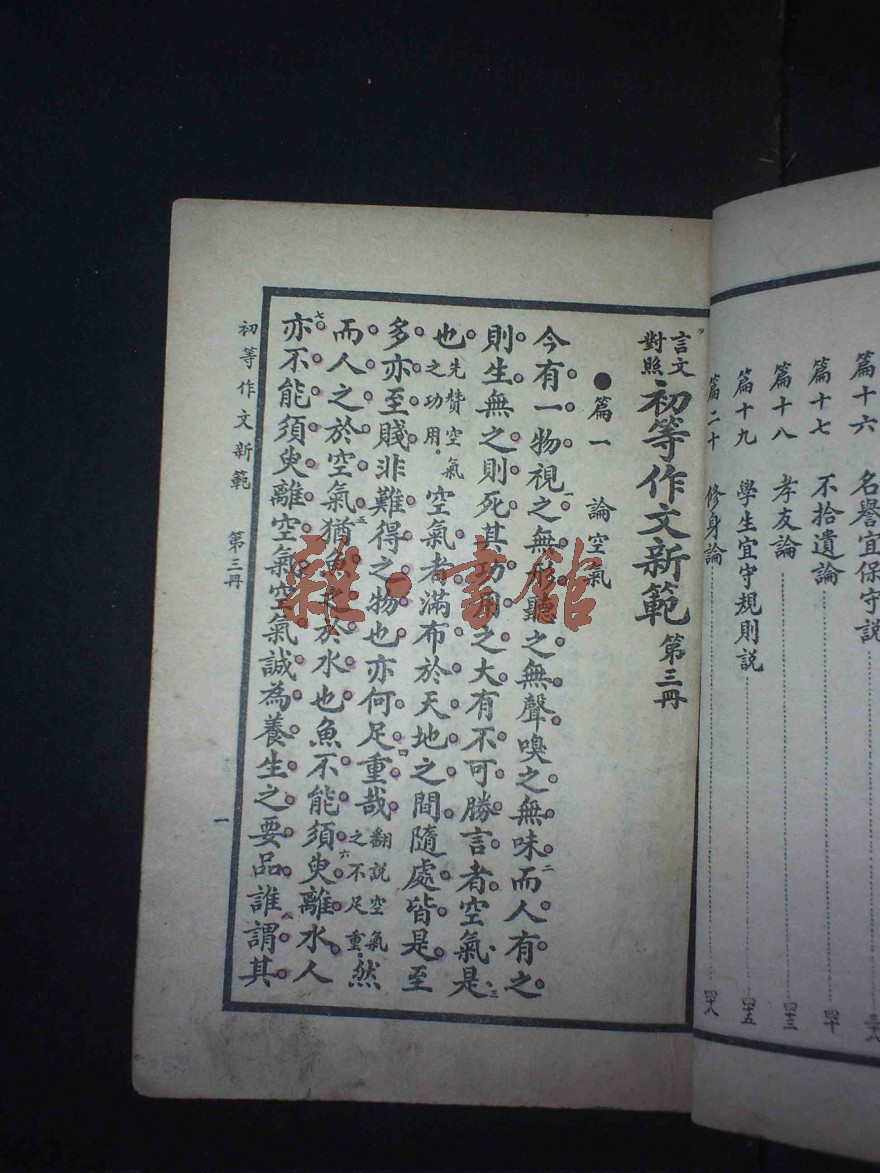 篇十六　名譽宜保守説
篇十七　不拾遺論　四十
篇十八　孝友論　四十三
篇十九　學生宜守規則説　四十五
篇二十　修身論　四十八
言文對照 初等作文新範 第三冊
●篇一　論空氣
今有一物視之無形聽之無聲嗅之無味而人有之
則生無之則死其功用之大有不可勝言者空氣是
也先贊空氣之功用。空氣者滿布於天地之間隨處皆是至
多亦至賤非難得之物也亦何足重哉翻説空氣之不足重。然
而人之於空氣猶魚之於水也魚不能須臾離水人
亦不能須臾離空氣空氣誠為養生之要品誰謂其
初等作文新範　第三冊　一
雜·書館